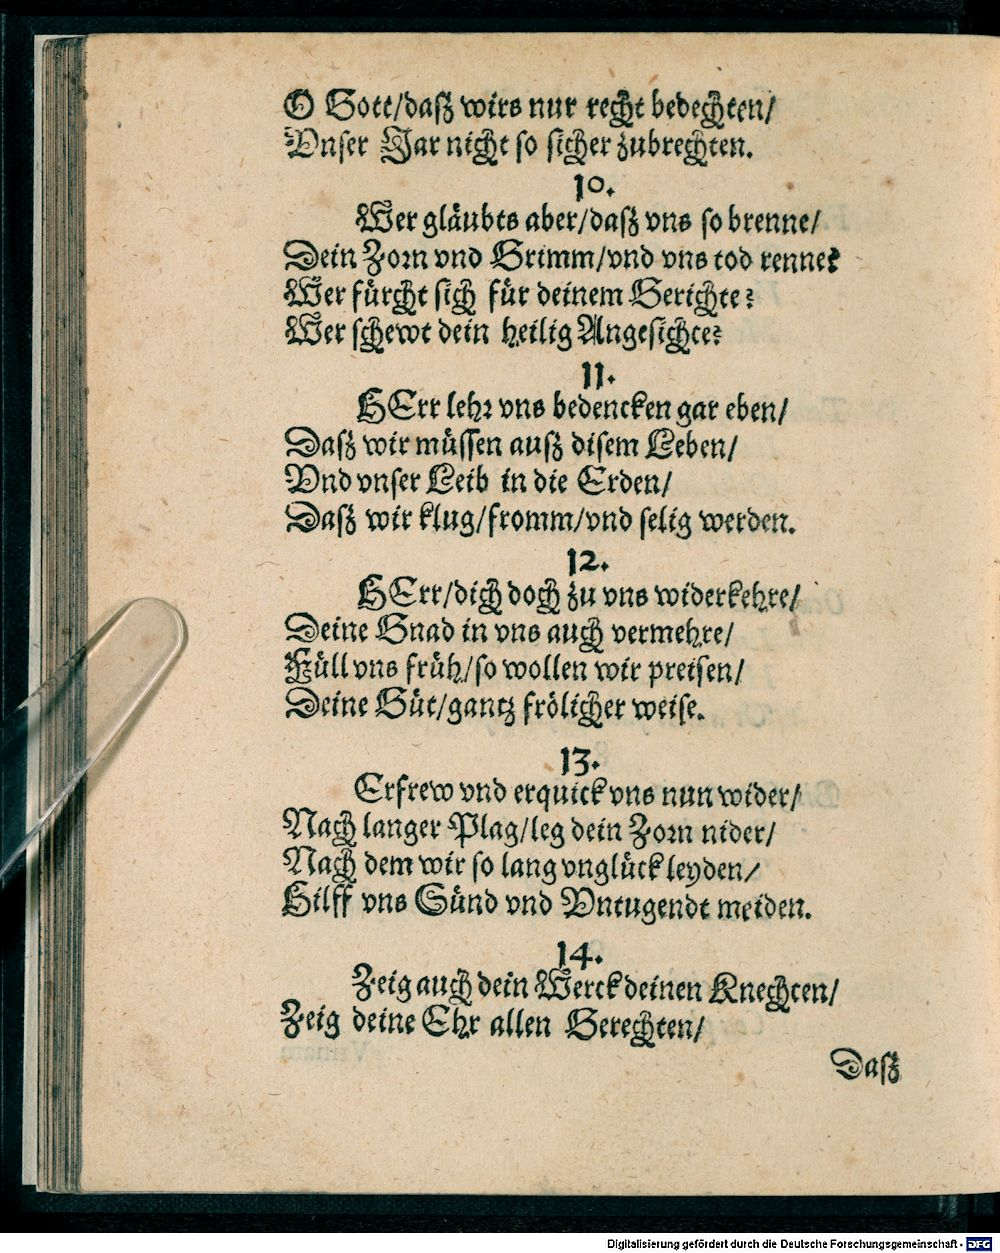 O Gott/daß wirs nur recht bedechten/
Vnser Jar nicht so sicher zubrechten.
10.
Wer gläubts aber/daß vns so brenne/
Dein Zorn vnd Grimm/vnd vns tod renne?
Wer fürcht sich für deinem Gerichte?
Wer schewt dein heilig Angesichte?
11.
HErr lehr vns bedencken gar eben/
Daß wir müssen auß disem Leben/
Vnd vnser Leib in die Erden/
Daß wir klug/fromm/vnd selig werden.
12.
HErr/dich doch zu vns widerkehre/
Deine Gnad in vns auch vermehre/
Füll vns früh/so wollen wir preisen/
Deine Güt/gantz frölicher weise.
13.
Erfrew vnd erquick vns nun wider/
Nach langer Plag/leg dein Zorn nider/
Nach dem wir so lang vnglück leyden/
Hilff vns Sünd vnd Vntugendt meiden.
14.
Zeig auch dein Werck deinen Knechten/
Zeig deine Ehr allen Gerechten/
Daß
Digitalisierung gefördert durch die Deutsche Forschungsgemeinschaft - DFG